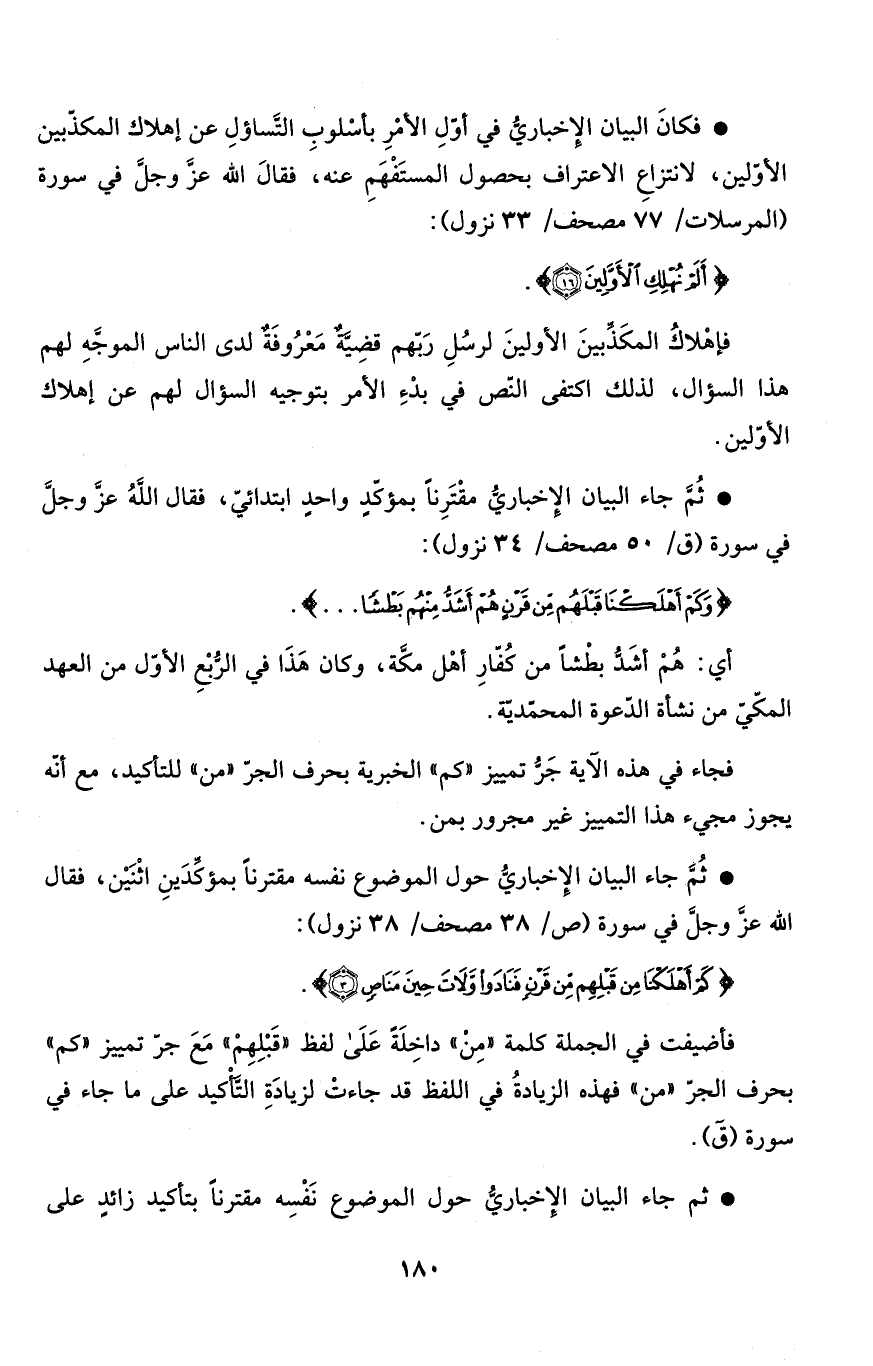 ● فكانَ البيان الإِخباريُّ في أوّلِ الأمْرِ بأسْلوبِ التَّساؤلِ عن إهلاك المكذّبين
الأوّلين، لانتزاعِ الاعتراف بحصول المستَفْهَمِ عنه، فقالَ الله عزَّ وجلَّ في سورة
(المرسلات/ ٧٧ مصحف/ ٣٣ نزول):
﴿ أَلَمْ نُهْلِكِ ٱلْأَوَّلِينَ ١٦﴾ .
فإهْلاكُ المكَذِّبينَ الأولينَ لرسُلِ رَبّهم قضِيَّةٌ مَعْرُوفَةٌ لدى الناس الموجَّهِ لهم
هذا السؤال، لذلك اكتفى النّص في بدْءِ الأمر بتوجيه السؤال لهم عن إهلاك
الأوّلين.
● ثُمَّ جاء البيان الإِخباريُّ مقْتَرِناً بمؤكّدٍ واحدٍ ابتدائيّ، فقال اللَّهُ عزَّ وجلَّ
في سورة (ق/ ٥٠ مصحف/ ٣٤ نزول):
﴿وَكَمْ أَهْلَكْنَا قَبْلَهُم مِّن قَرْنٍ هُمْ أَشَدُّ مِنْهُم بَطْشًا. . .﴾ .
أي: هُمْ أشَدُّ بطْشاً من كُفّارِ أهْل مكَّة، وكان هَذَا في الرُّبْعِ الأوّل من العهد
المكّيّ من نشأة الدّعوة المحمّديّة.
فجاء في هذه الآية جَرُّ تمييز «كم» الخبرية بحرف الجرّ «من» للتأكيد، مع أنّه
يجوز مجيء هذا التمييز غير مجرور بمن.
● ثُمَّ جاء البيان الإِخباريُّ حول الموضوع نفسه مقترناً بمؤكِّدَينِ اثْنَيْن، فقال
الله عزَّ وجلَّ في سورة (ص/ ٣٨ مصحف/ ٣٨ نزول):
﴿ كَمْ أَهْلَكْنَا مِن قَبْلِهِم مِّن قَرْنٍ فَنَادَوا۟ وَّلَاتَ حِينَ مَنَاصٍ ٣﴾ .
فأضيفت في الجملة كلمة «مِنْ» داخِلَةً عَلَىٰ لفظ «قَبْلِهِمْ» مَعَ جرّ تمييز «كم»
بحرف الجرّ «من» فهذه الزيادةُ في اللفظ قد جاءتْ لزيادَةِ التَّأْكيد على ما جاء في
سورة (قَ).
● ثم جاء البيان الإِخباريُّ حول الموضوع نَفْسِه مقترناً بتأكيد زائدٍ على
١٨٠